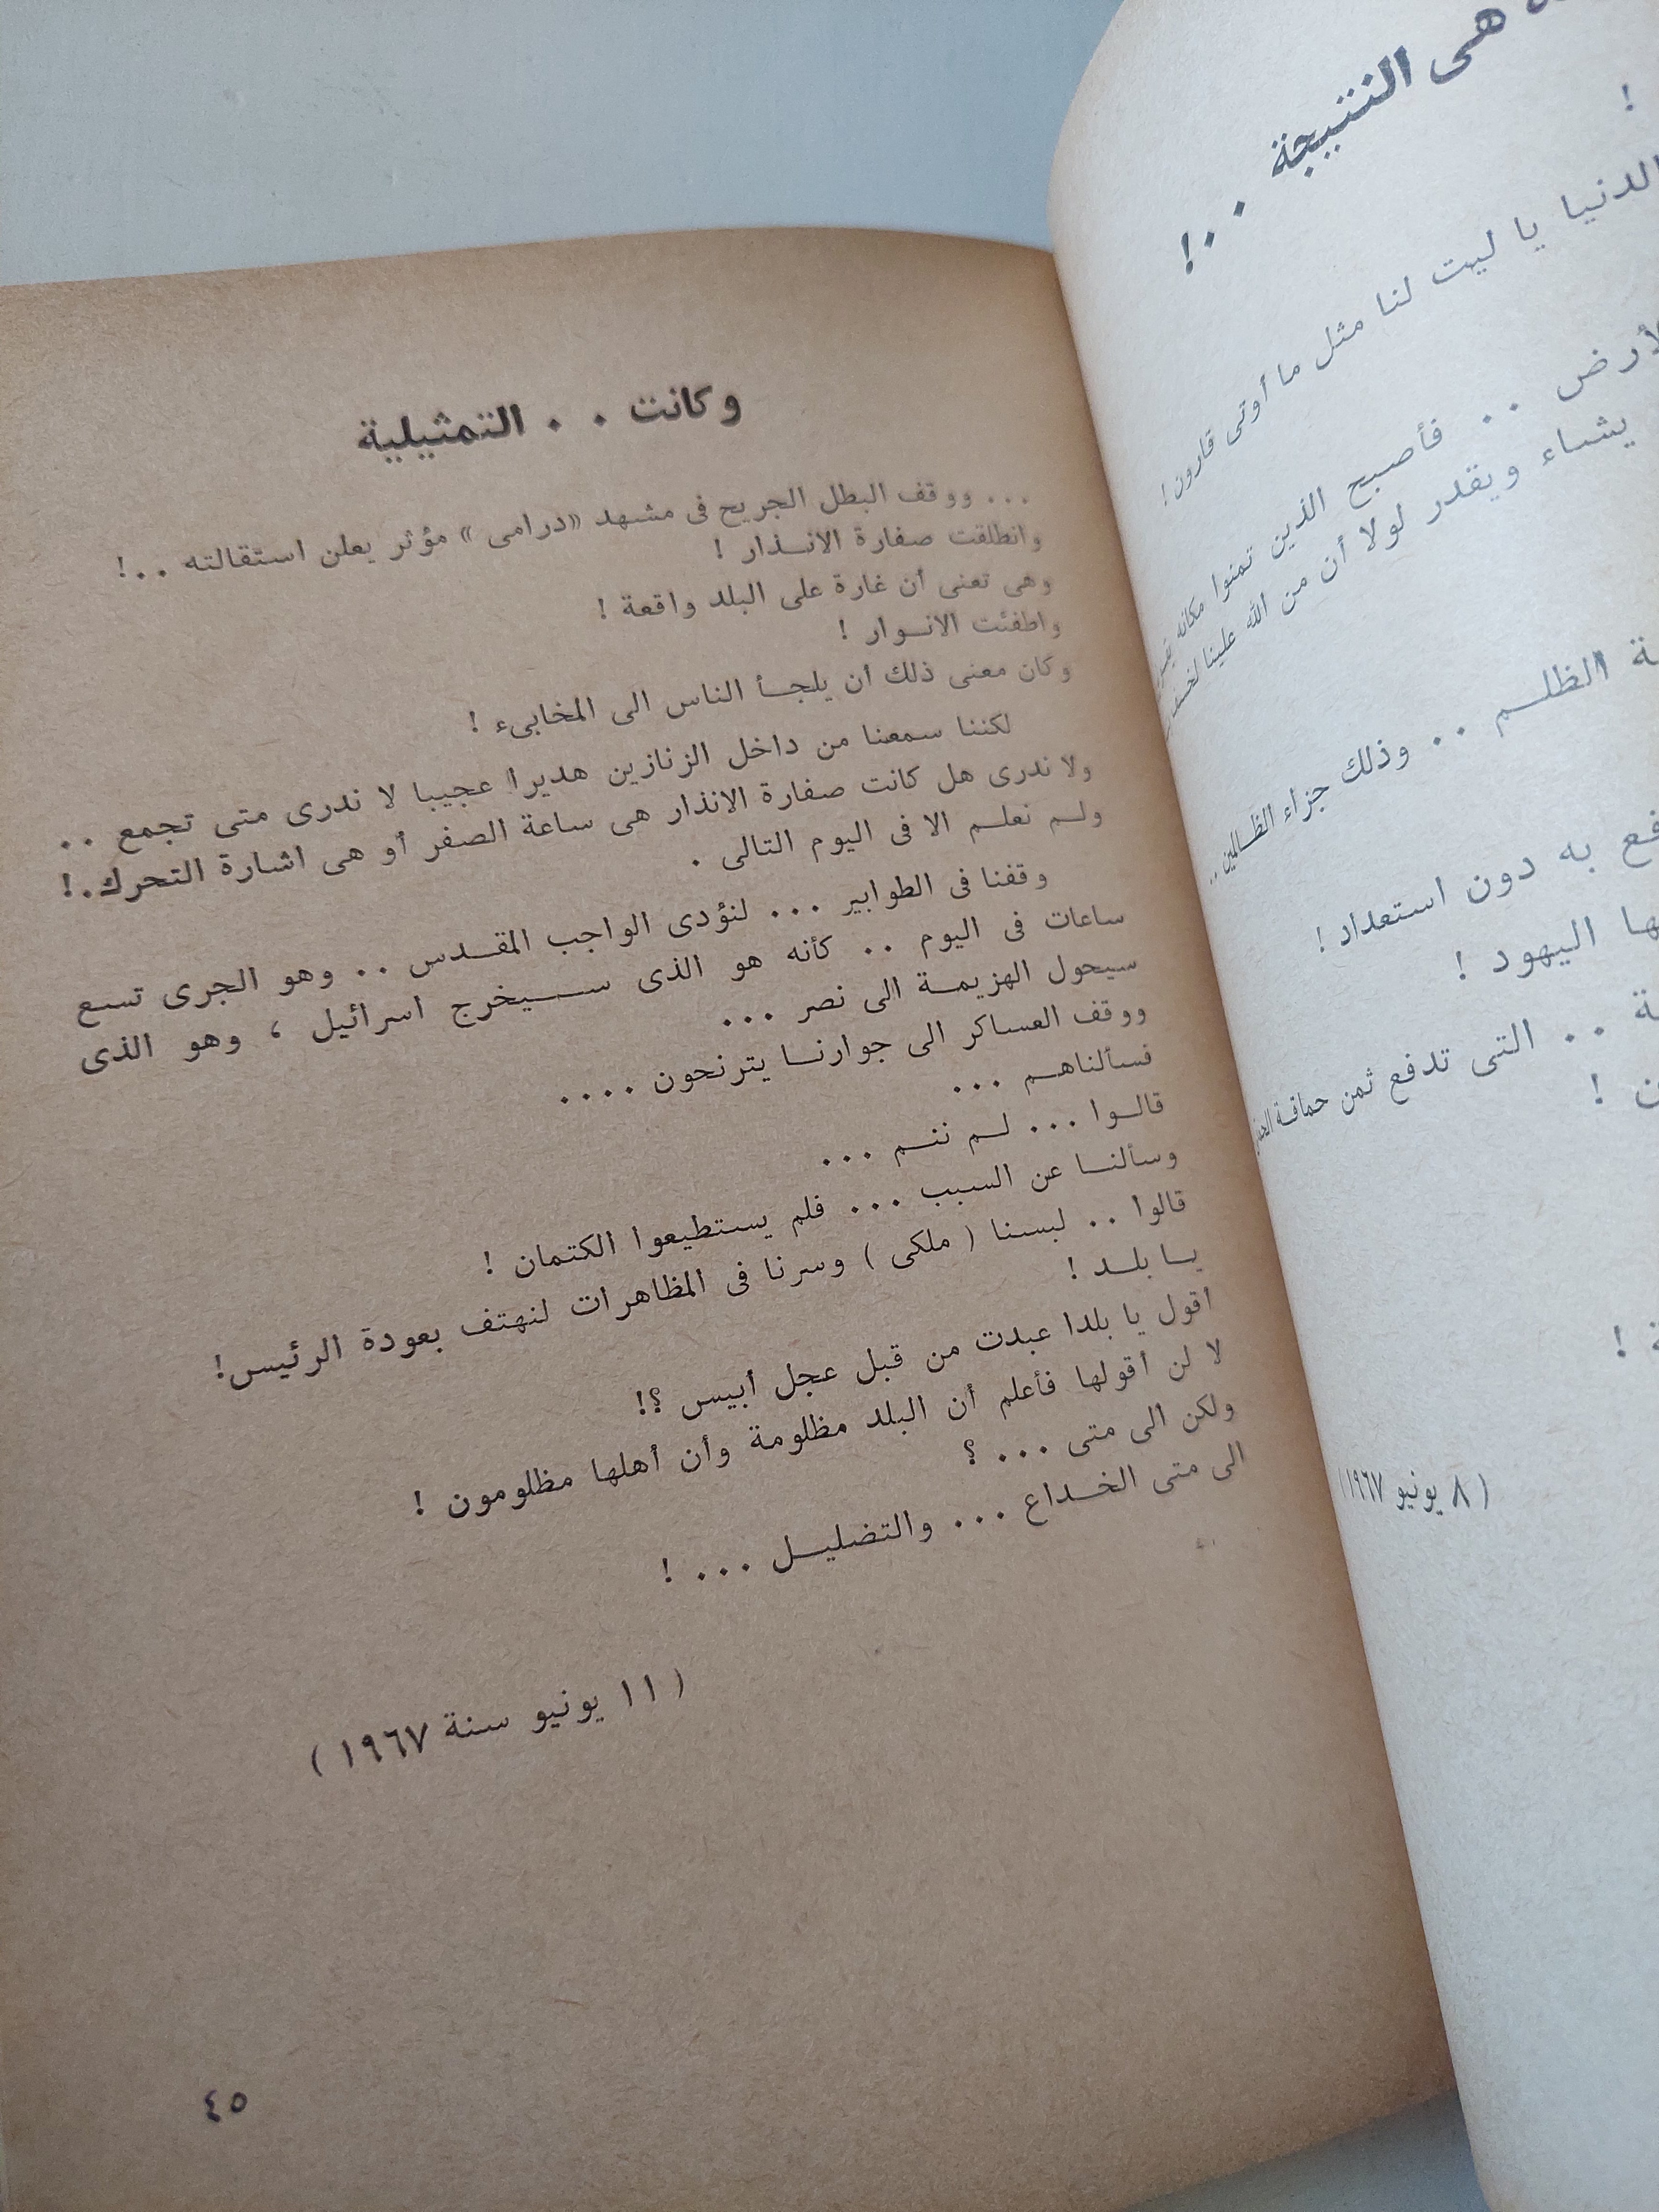 هى النتيجة . . !
!
الدنيا يا ليت لنا مثل ما أوتى قارون !
الأرض . . فأصبح الذين تمنوا مكانه
يشاء ويقدر لولا أن من الله علينا
الظلــم . . وذلك جزاء الظالمين . .
به دون استعداد !
اليهود !
. . التى تدفع ثمن حماقة
!
!
( ٨ يونيو ١٩٦٧ )
وكانت . . التمثيلية
. . . ووقف البطل الجريح فى مشهد « درامى » مؤثر يعلن استقالته . . !
وانطلقت صفارة الانــذار !
وهى تعنى أن غارة على البلد واقعة !
واطفئت الانــوار !
وكان معنى ذلك أن يلجــأ الناس الى المخابىء !
لكننا سمعنا من داخل الزنازين هديرا عجيبا لا ندرى متى تجمع . .
ولا ندرى هل كانت صفارة الانذار هى ساعة الصفر أو هى اشارة التحرك . !
ولــم نعلــم الا فى اليوم التالى .
وقفنا فى الطوابير . . . لنؤدى الواجب المقــدس . . وهو الجرى تسع
ساعات فى اليوم . . كأنه هو الذى ســيخرج اسرائيل ، وهو الذى
سيحول الهزيمــة الى نصر . . .
ووقف العساكر الى جوارنــا يترنحون . . . .
فسألناهــم . . .
قالــوا . . . لــم ننــم . . .
وسألنــا عن السبب . . . فلم يستطيعوا الكتمان !
قالوا . . لبسنا ( ملكى ) وسرنا فى المظاهرات لنهتف بعودة الرئيس !
يــا بلــد !
أقول يا بلدا عبدت من قبل عجل أبيس ؟!
لا لن أقولها فأعلم أن البلد مظلومة وأن أهلها مظلومون !
ولكن الى متى . . . ؟
الى متى الخــداع . . . والتضليــل . . . !
( ١١ يونيو سنة ١٩٦٧ )
٤٥